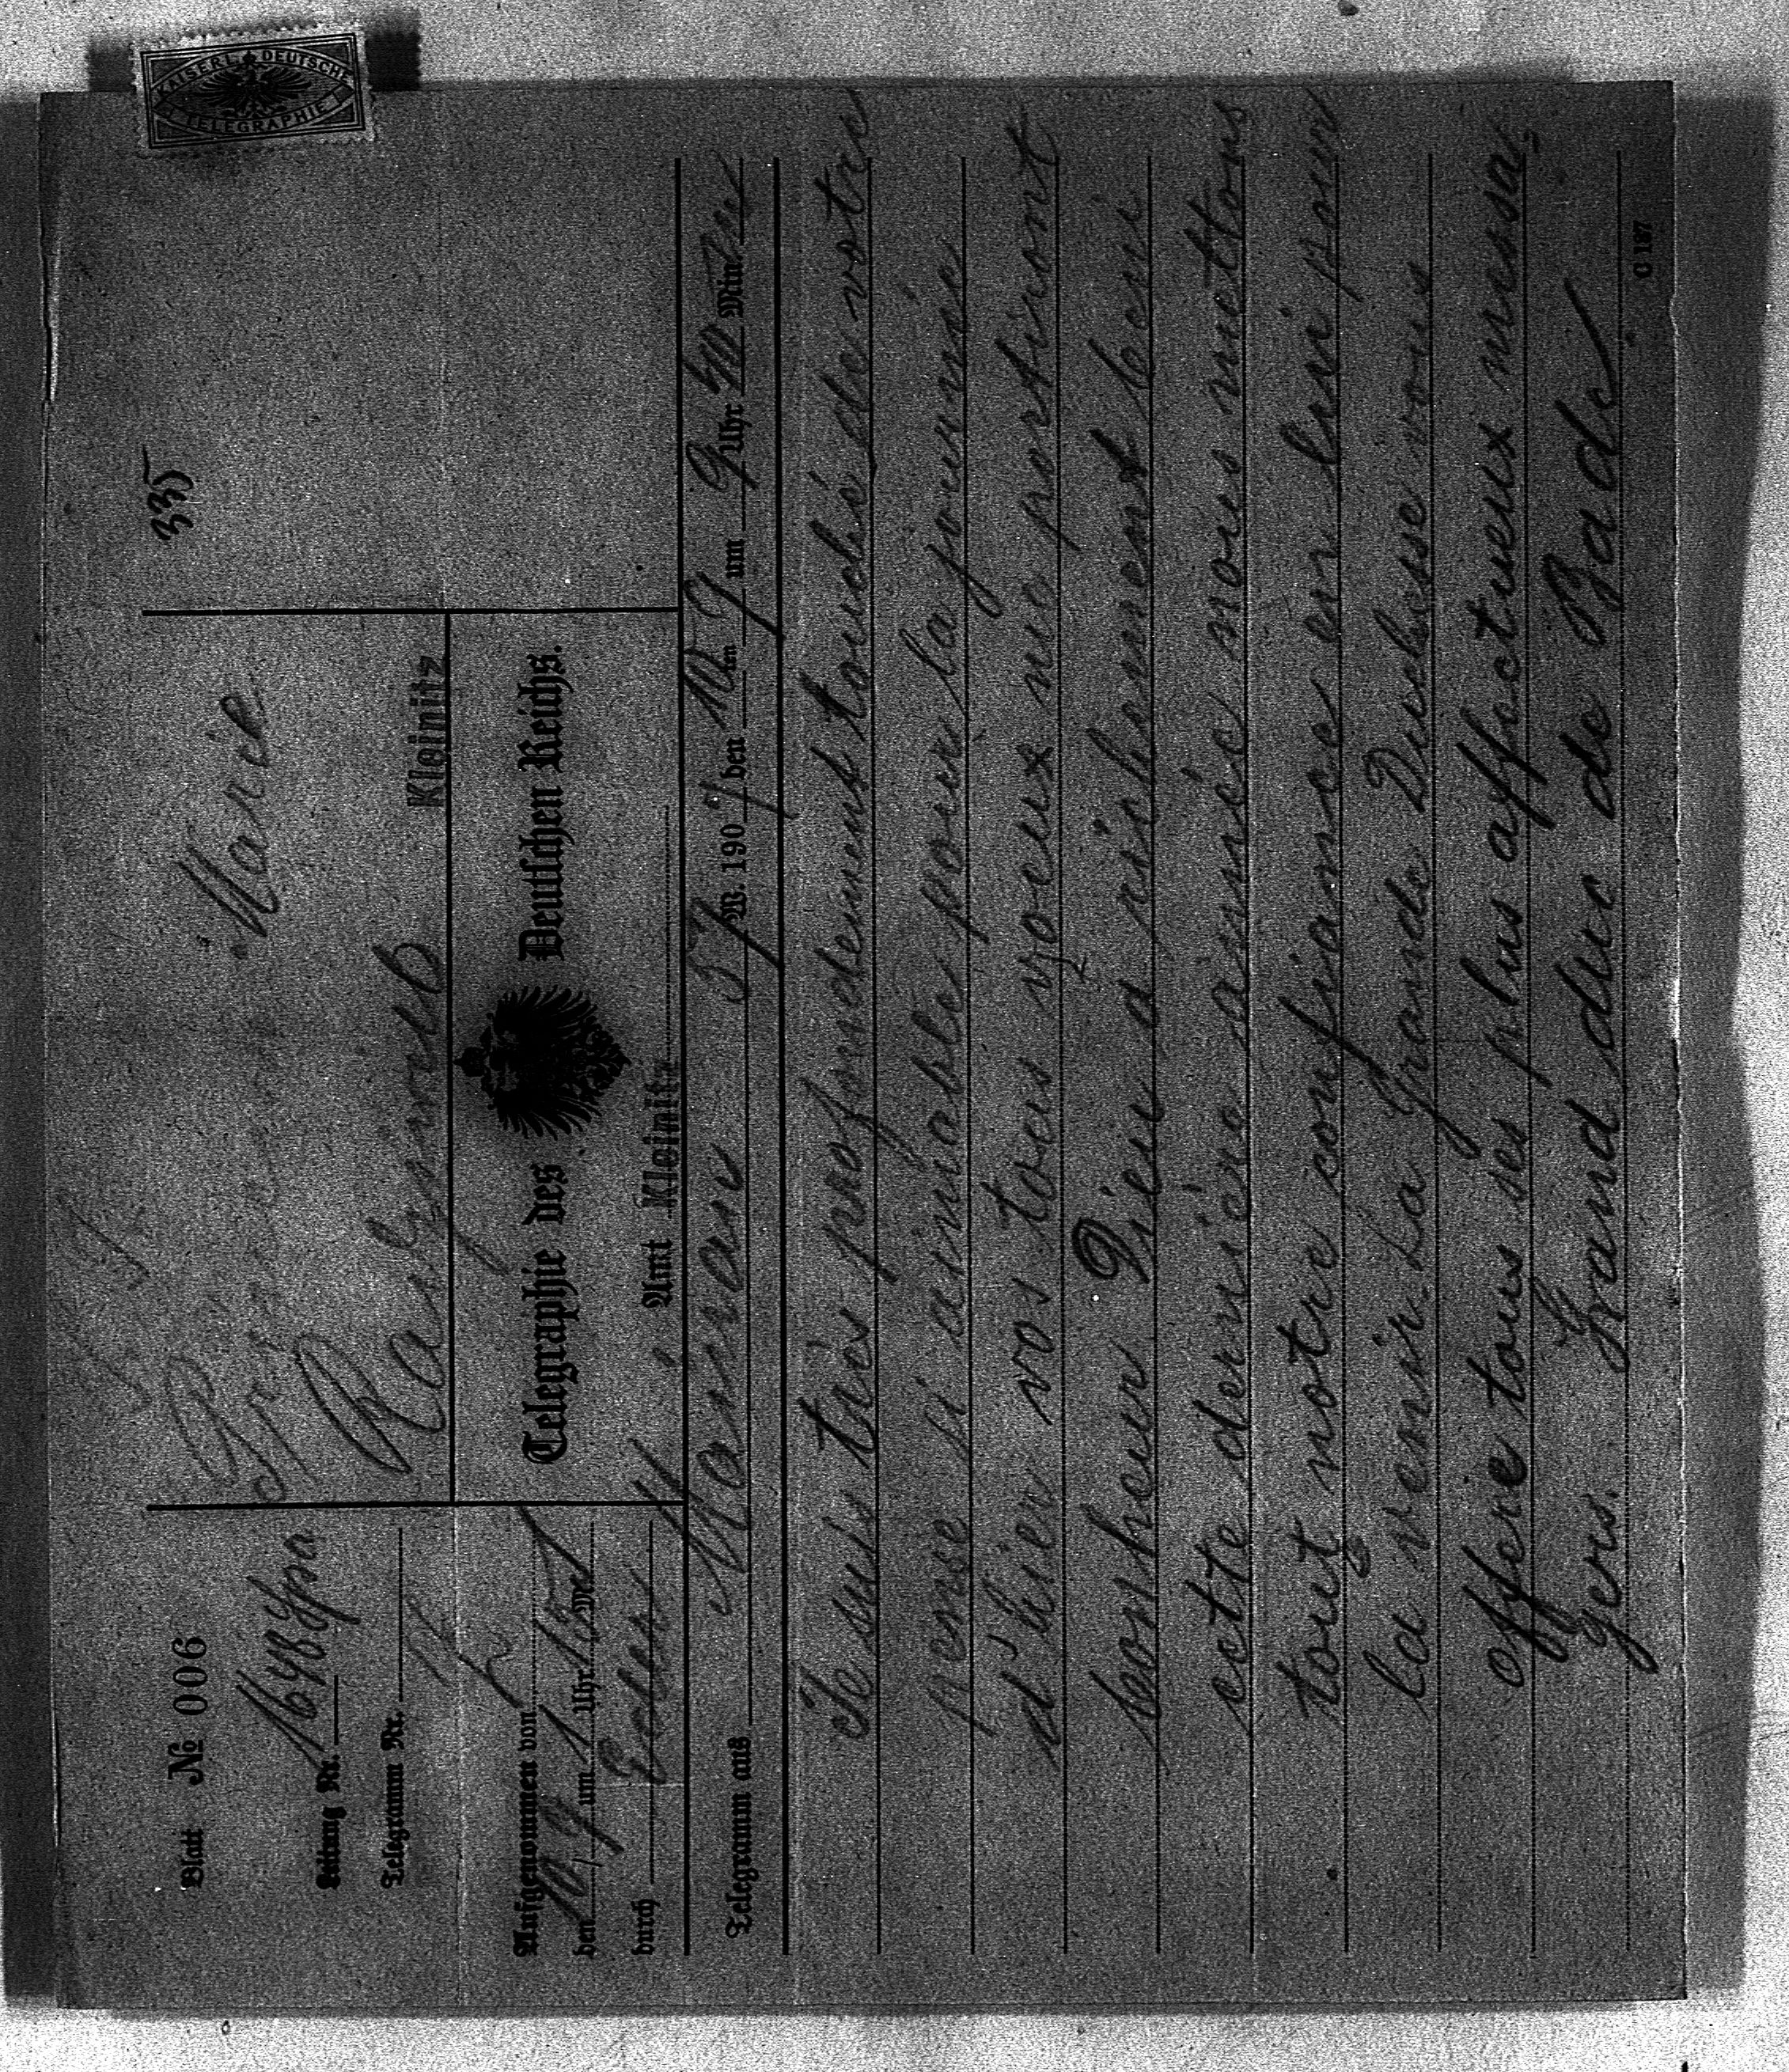 KAISERL. DEUTSCHE
TELEGRAPHIE
335
Blatt № 006
Leitung Nr.
Telegramm Nr.
Marie
Kleinitz
Aufgenommen von
den 10/9 um 1 Uhr 15 M
durch
Telegraphie des Deutschen Reichs.
Amt Kleinitz
Telegramm aus Mainau 57 W. 1907 den 10/9 um 9 Uhr 40 Min
Je suis très profondement touché de votre
pense si aimable pour la journee
d'hier vos tous voeux me portiront
bonheur Dieu a richement beni
cette dernière année nous mettons
tout notre confiance en lui pour
la venir. La Grande Duchesse vous
offrie tous ses plus affectueux messa,
gers. Grand duc de Bade
C 187